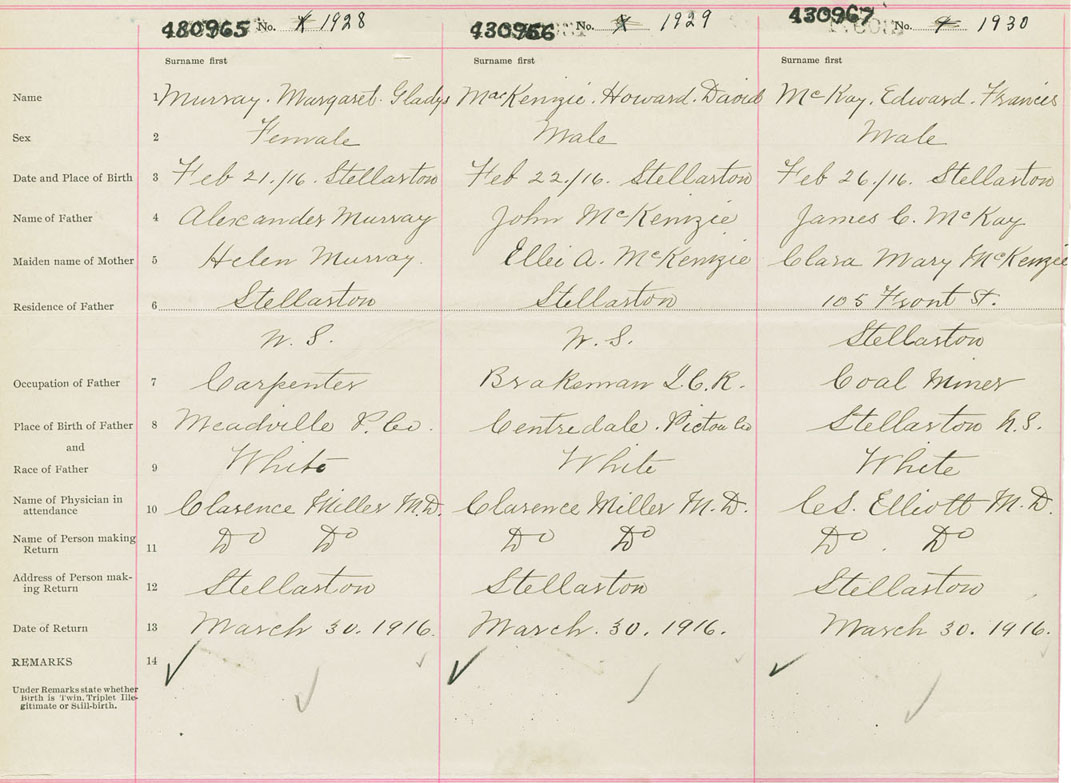 430965 No. 1928 430966 No. 1929 430967 No. 1930
Surname first Surname first Surname first
Name 1 Murray. Margaret. Gladys MacKenzie. Howard. David McKay. Edward. Francis
Sex 2 Female Male Male
Date and Place of Birth 3 Feb 21./16. Stellarton Feb 22./16. Stellarton Feb 26./16. Stellarton
Name of Father 4 Alexander Murray John McKenzie James C. McKay
Maiden name of Mother 5 Helen Murray. A. McKenzie Clara Mary McKenzie
Residence of Father 6 Stellarton Stellarton 105 Front St.
N. S. N. S. Stellarton
Occupation of Father 7 Carpenter Brakeman I.C.R. Coal Miner
Place of Birth of Father 8 Meadville P. Co. Centredale. Pictou Co Stellarton N.S.
and
Race of Father 9 White White White
Name of Physician in
attendance 10 Clarence Miller M.D. Clarence Miller M.D. C.S. Elliott M.D.
Name of Person making
Return 11 Do Do Do Do Do. Do
Address of Person mak-
ing Return 12 Stellarton Stellarton Stellarton
Date of Return 13 March 30. 1916. March. 30. 1916. March 30. 1916.
REMARKS 14
Under Remarks state whether
Birth is Twin, Triplet Ille-
gitimate or Still-birth.